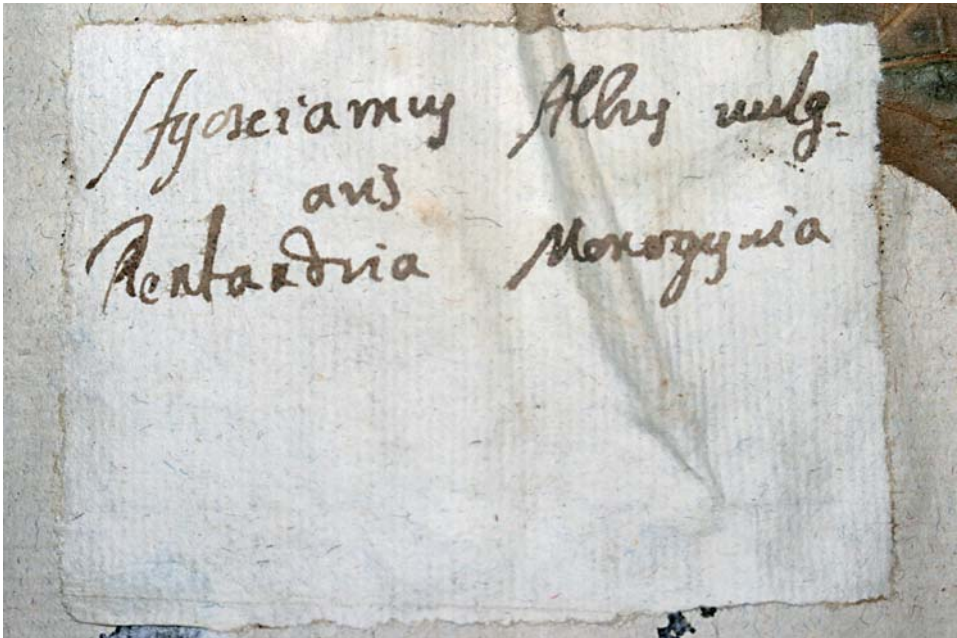 Hyosciamus Albus vulg=
aris
Pentandria Monogynia